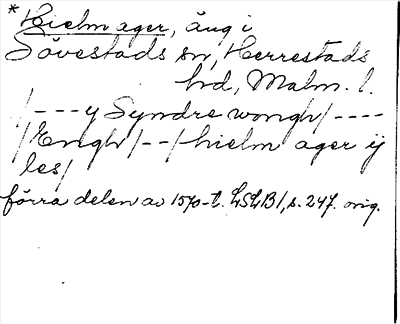 *Hielm ager, äng i
Sövestads sn, Herrestads
hd, Malm. l.
/---y Syndre wongh/----
/Engh/--/hielm ager ij
les/
förra delen av 1570-t. LSLB1, s. 247. orig.